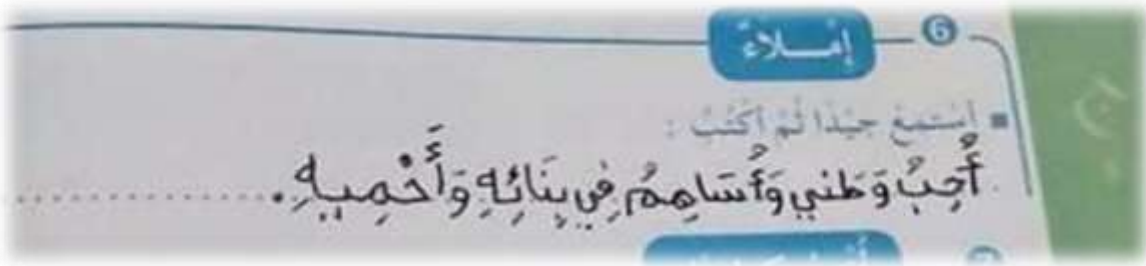 6 إملاء
أستمع جيدا ثم أكتب :
أُحِبُّ وَطَني وَأُسَاهِمُ فِي بِنَائِهِ وَأَحْمِيهِ.